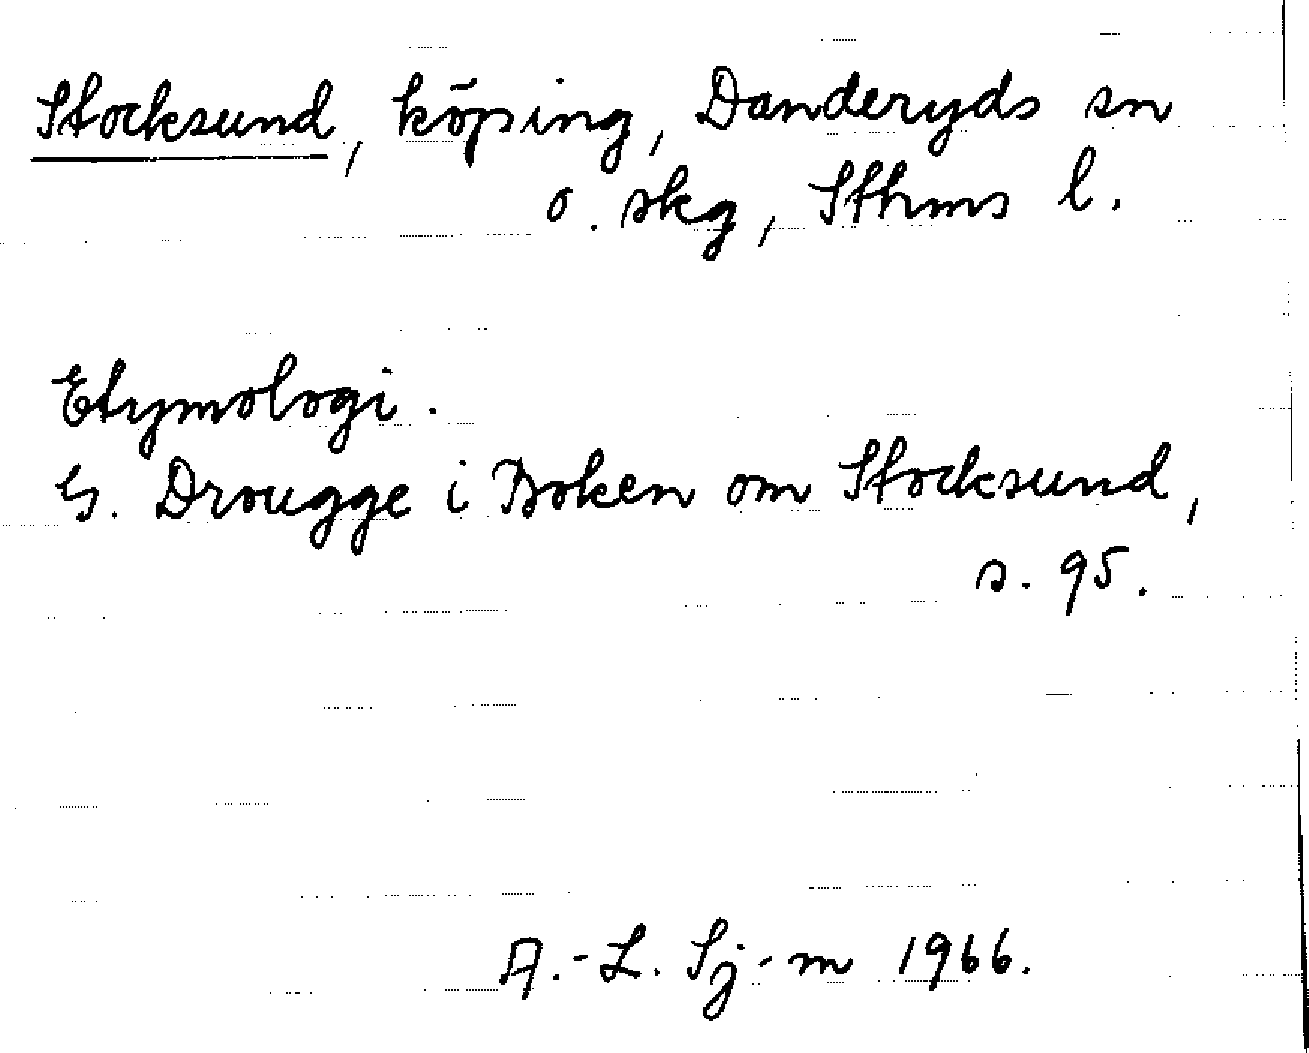 Stocksund, köping, Danderyds sn
o. skg, Sthms l.
Etymologi.
G. Drougge i Boken om Stocksund,
s. 95.
A.-L. Sj-m 1966.